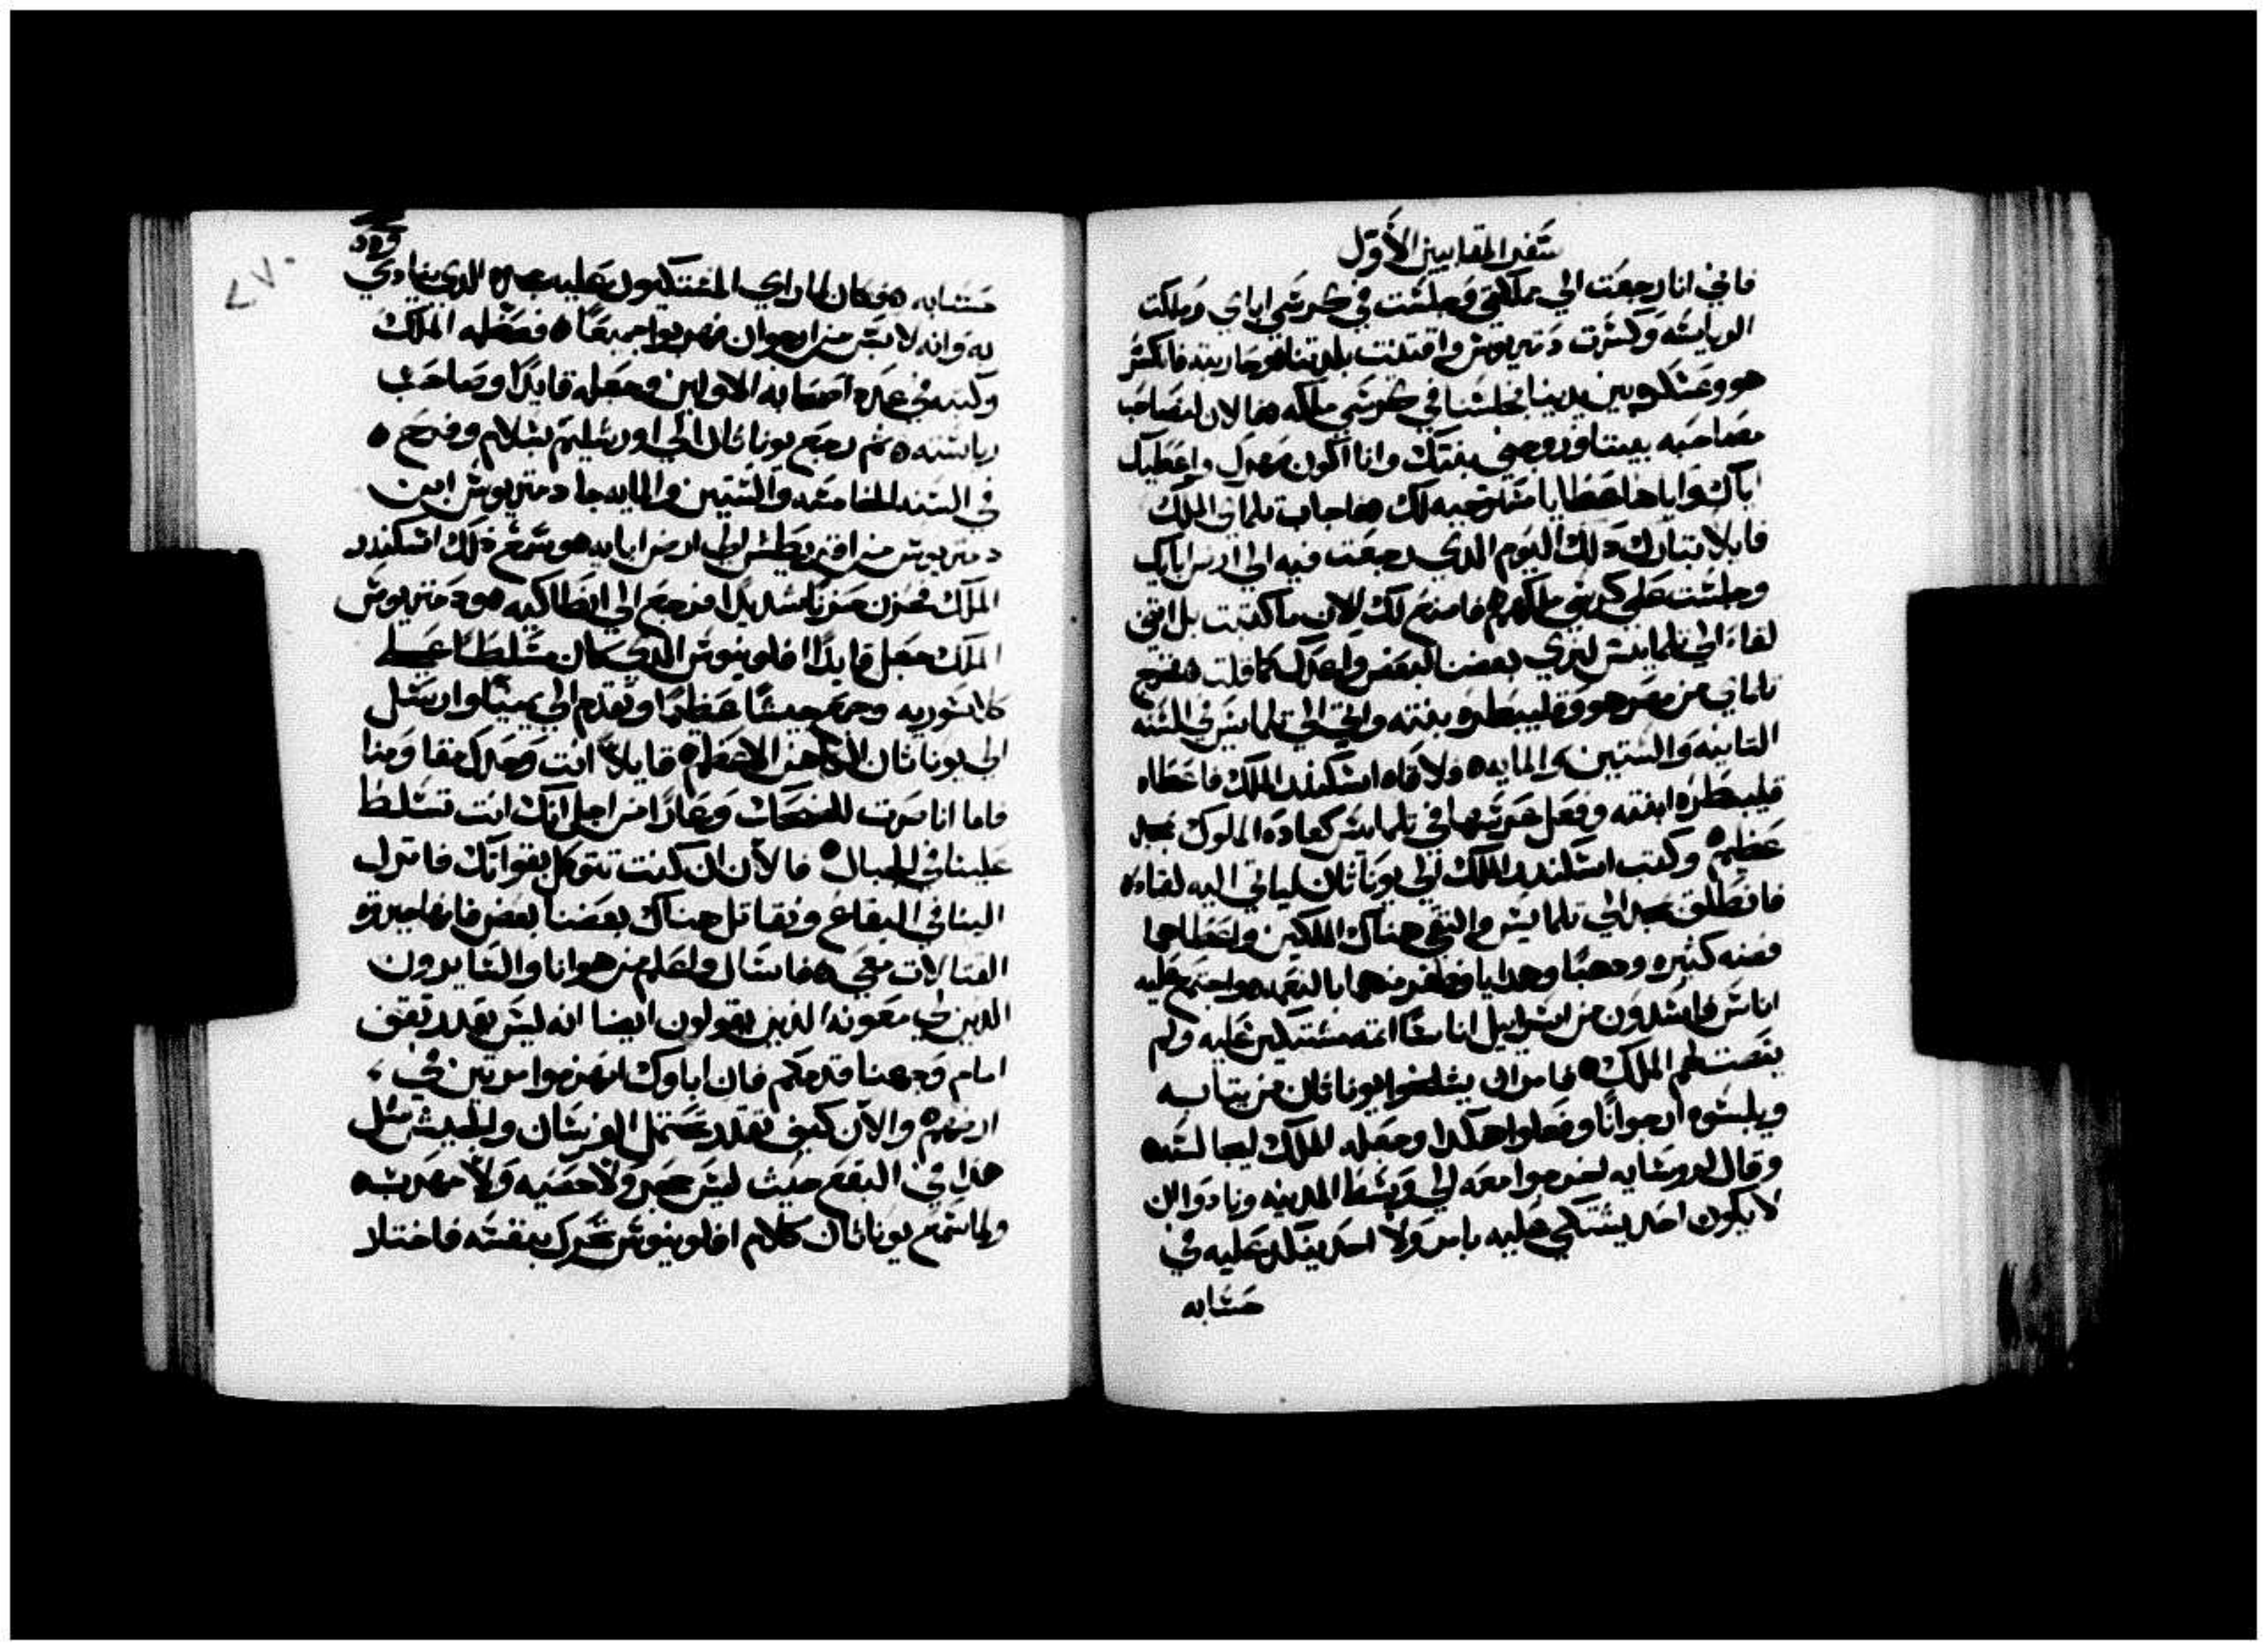 سفر المقابيين الأول
فاني انا رجعت الي مملكتي وجلست في كرسي اباي وملكت
الرياسه وكسرت دمتريوس واقتنيت بلدتنا وحاربته فانكسر
هو وعسكره بين يدينا فجلسنا في كرسي ملكه فالان لنصاحب
مصاحبه بيننا وزوجني بنتك وانا اكون صهرك واعطيك
اياك واياها عطايا مستوجبه لك فاجاب تلماي الملك
قايلا تبارك ذلك اليوم الدي رجعت فيه الي ارض اباىك
وجلست علي كرسي ملكهم فاصنع لك الان ما كتبت بل ايتي
لقاء الي تلمايس لنري بعضنا لبعض واعدك كما قلت فخرج
تلماي من مصر هو وقليبطره بنته واتي الي تلمايس في السنه
التانيه والستين والمايه ولاقاه اسكندر الملك فاعطاه
قليبطره ابنته وفعل عرسها في تلمايس كعاده الملوك بمجد
عظيم وكتب اسكندر الملك الي يوناثان لياتي اليه لقاءه
فانطلق بمجد الي تلمايس والتقي هناك الملكين واعطاهما
فضه كثيره ودهبا وهدايا وظفر منهما بالنعمه واجتمع عليه
اناس فاسدون من اسراييل اناسا اثمه مشتكين عليه ولم
ينصت لهم الملك فامر ان يشلحوا يوناثان من ثيابه
ويلبسوه ارجوانا وفعلوا هكدا وجعله الملك ليجالسه
وقال لروسايه اخرجوا معه الي وسط المدينه ونادوا ان
لا يكون احد يشتكي عليه بامر ولا احد يتكدر عليه في
حسابه
حسابه فكان لما راي المشتكيون عليه مجده الدي ينادي
به وانه لابس من ارجوان فهربوا جميعا فعظمه الملك
وكتبه في عدد اصحابه الاولين وجعله قايدا وصاحب
رياسته ثم رجع يوناثان الي اورشليم بسلام وفرح
في السنه الخامسه والستين والمايه جا دمتريوس ابن
دمتريوس من اقريطش الي ارض ابايه وسمع ذلك اسكندر
الملك فحزن حزنا شديدا فرجع الي انطاكيه ودمتريوس
الملك جعل قايدا افلونيوس الدي كان متسلطا علي
كلاسوريه وجمع جيشا عظيما وتقدم الي يمينا وارسل
الي يوناثان الكاهن الاعظم قايلا انت وحدك تقاومنا
فاما انا صرت للضحك وعارا من اجل انك انت تسلط
علينا في الجبال فالان ان كنت تتوكل بقواتك فانزل
الينا في البقاع ونقاتل هناك بعضنا بعض فانها جبروة
القتالات معي فاسال واعلم من هو انا والسايرون
الدين لي معونه الذين يقولون ايضا انه ليس يقدر تقف
امام وجهنا قدمكم فان اباوك انهزموا مرتين في
ارضهم والان كيف تقدر تحتمل الفرسان والجيش مثل
هذا في البقع حيث ليس حجر ولا حصيه ولا مهربه
ولما سمع يوناثان كلام افلونيوس تحرك بنفسه فاختار